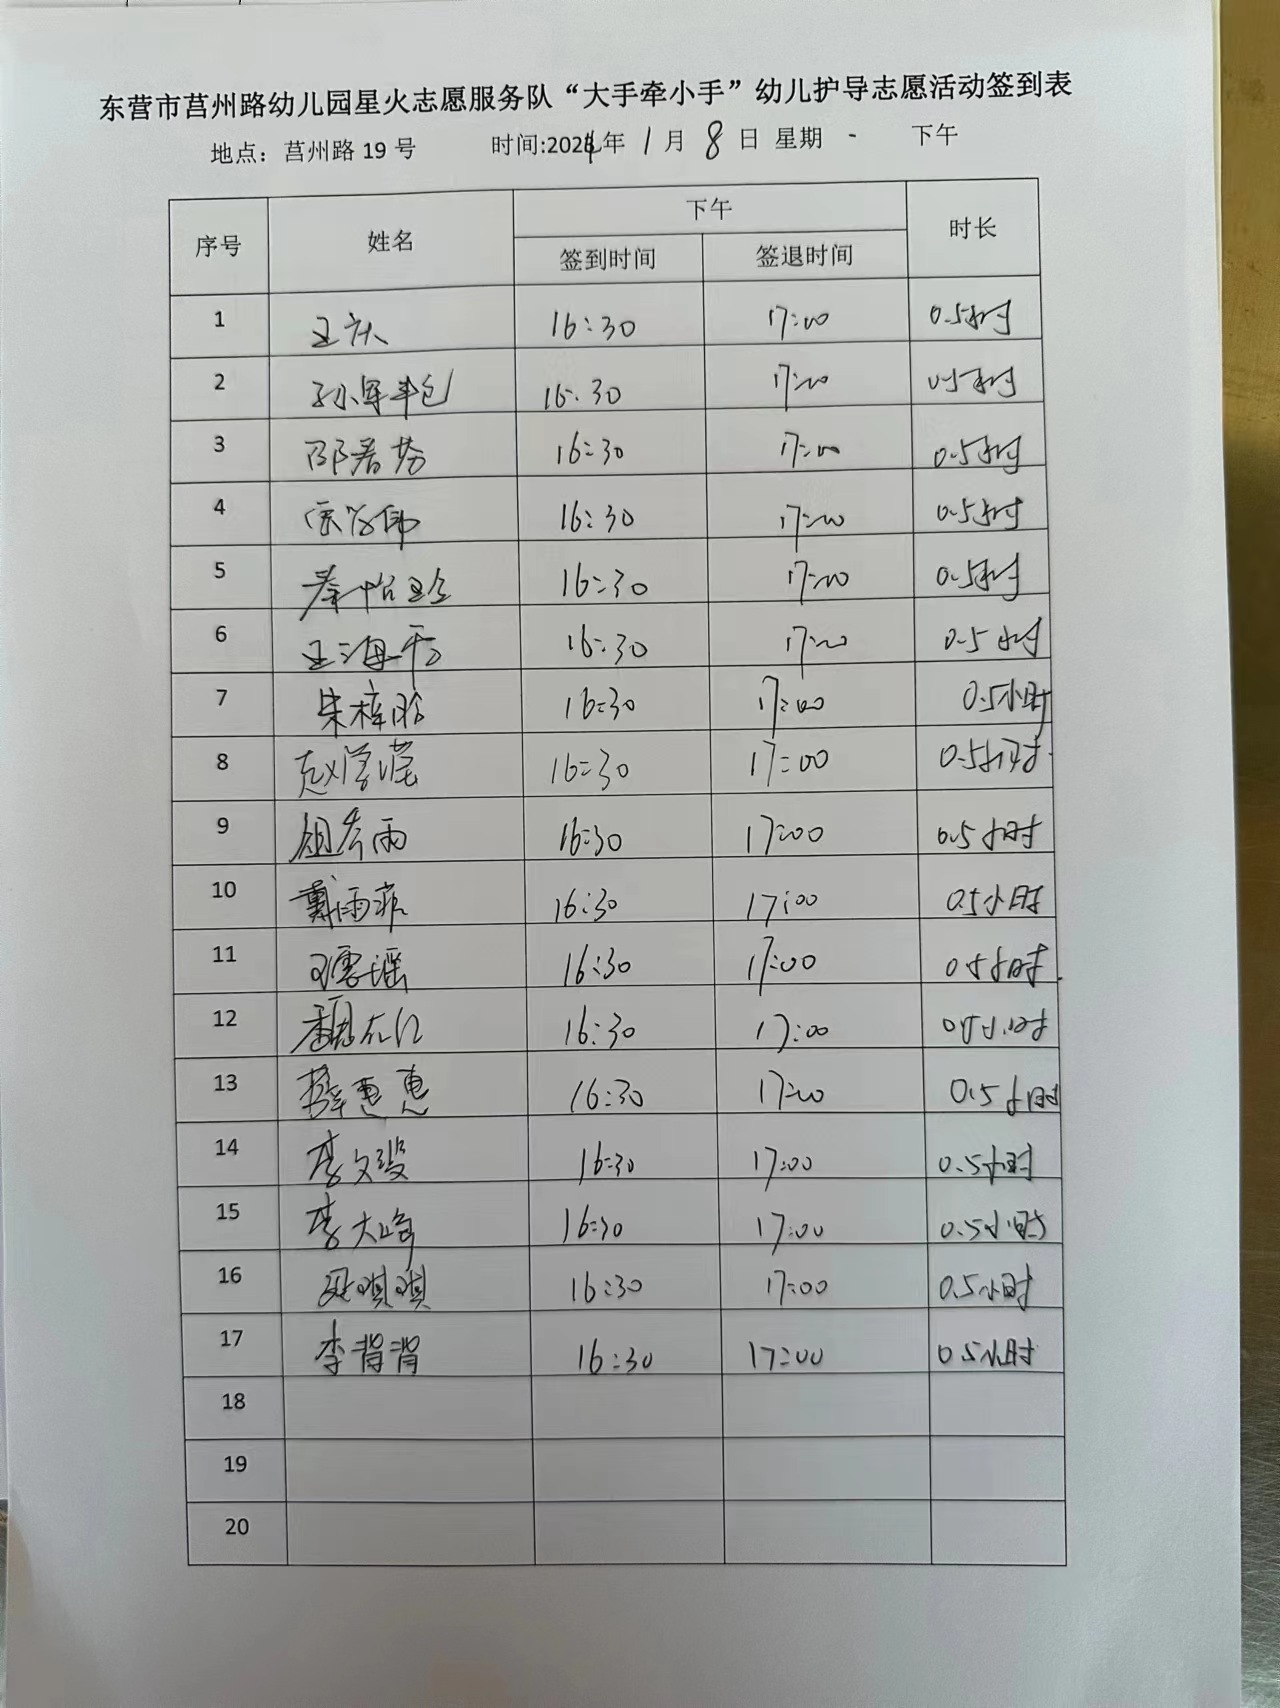 东营市莒州路幼儿园星火志愿服务队“大手牵小手”幼儿护导志愿活动签到表
地点：莒州路 19 号 时间:2024年 1 月 8 日 星期 - 下午
序号 姓名 下午 时长
签到时间 签退时间
1 王庆 16:30 17:00 0.5小时
2 16:30 17:00 0.5小时
3 邵君芳 16:30 17:00 0.5小时
4 16:30 17:00 0.5小时
5 秦怡玲 16:30 17:00 0.5小时
6 王海云 16:30 17:00 0.5小时
7 朱梓晗 16:30 17:00 0.5小时
8 赵滢滢 16:30 17:00 0.5小时
9 16:30 17:00 0.5小时
10 戴雨菲 16:30 17:00 0.5小时
11 16:30 17:00 0.5小时
12 16:30 17:00 0.5小时
13 薛惠惠 16:30 17:00 0.5小时
14 李文 16:30 17:00 0.5小时
15 李大峰 16:30 17:00 0.5小时
16 琪琪 16:30 17:00 0.5小时
17 李 16:30 17:00 0.5小时
18
19
20